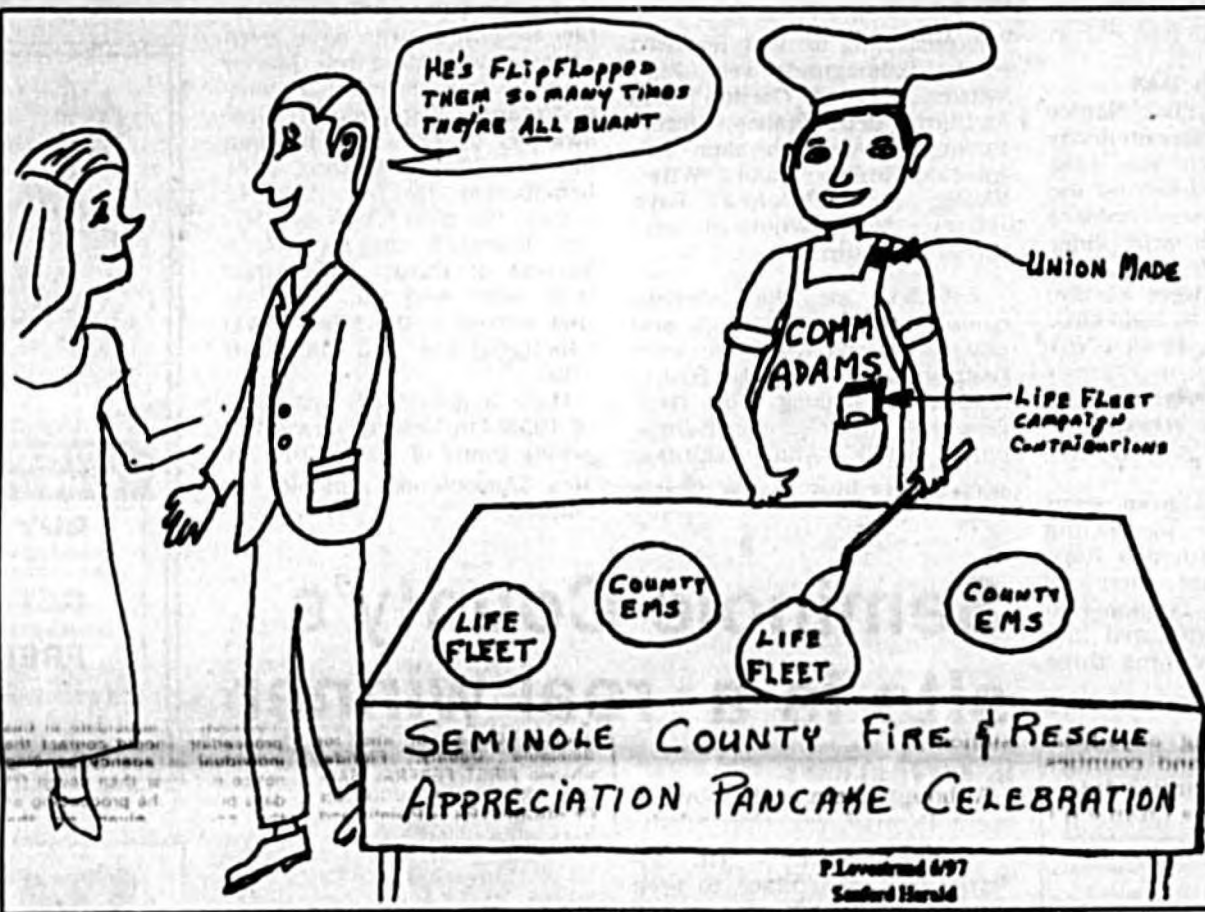 HE'S FLIPFLOPPED
THEM SO MANY TIMES
THEY'RE ALL BURNT
UNION MADE
COMM
ADAMS
LIFE FLEET
CAMPAIGN
CONTRIBUTIONS
LIFE
FLEET
COUNTY
EMS
LIFE
FLEET
COUNTY
EMS
SEMINOLE COUNTY FIRE & RESCUE
APPRECIATION PANCAKE CELEBRATION
P.Lovestrand 6/97
Sanford Herald